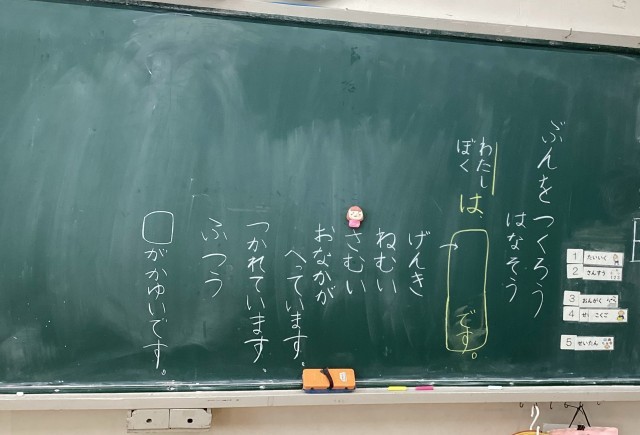 ぶんをつくろう
はなそう
わたし
ぼく
は
です。
げんき
ねむい
さむい
おなかが
へっています。
つかれています。
ふつう
がかゆいです。
1 たいいく
2 さんすう
3 おんがく
4 せ こくご
5 せいたん